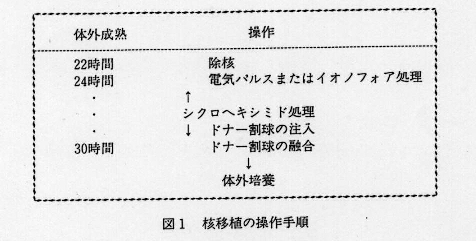 体外成熟 操作
22時間 除核
24時間 電気パルスまたはイオノフォア処理
・ ↑
・ シクロヘキシミド処理
・ ↓ ドナー割球の注入
30時間 ドナー割球の融合
↓
体外培養
図1 核移植の操作手順